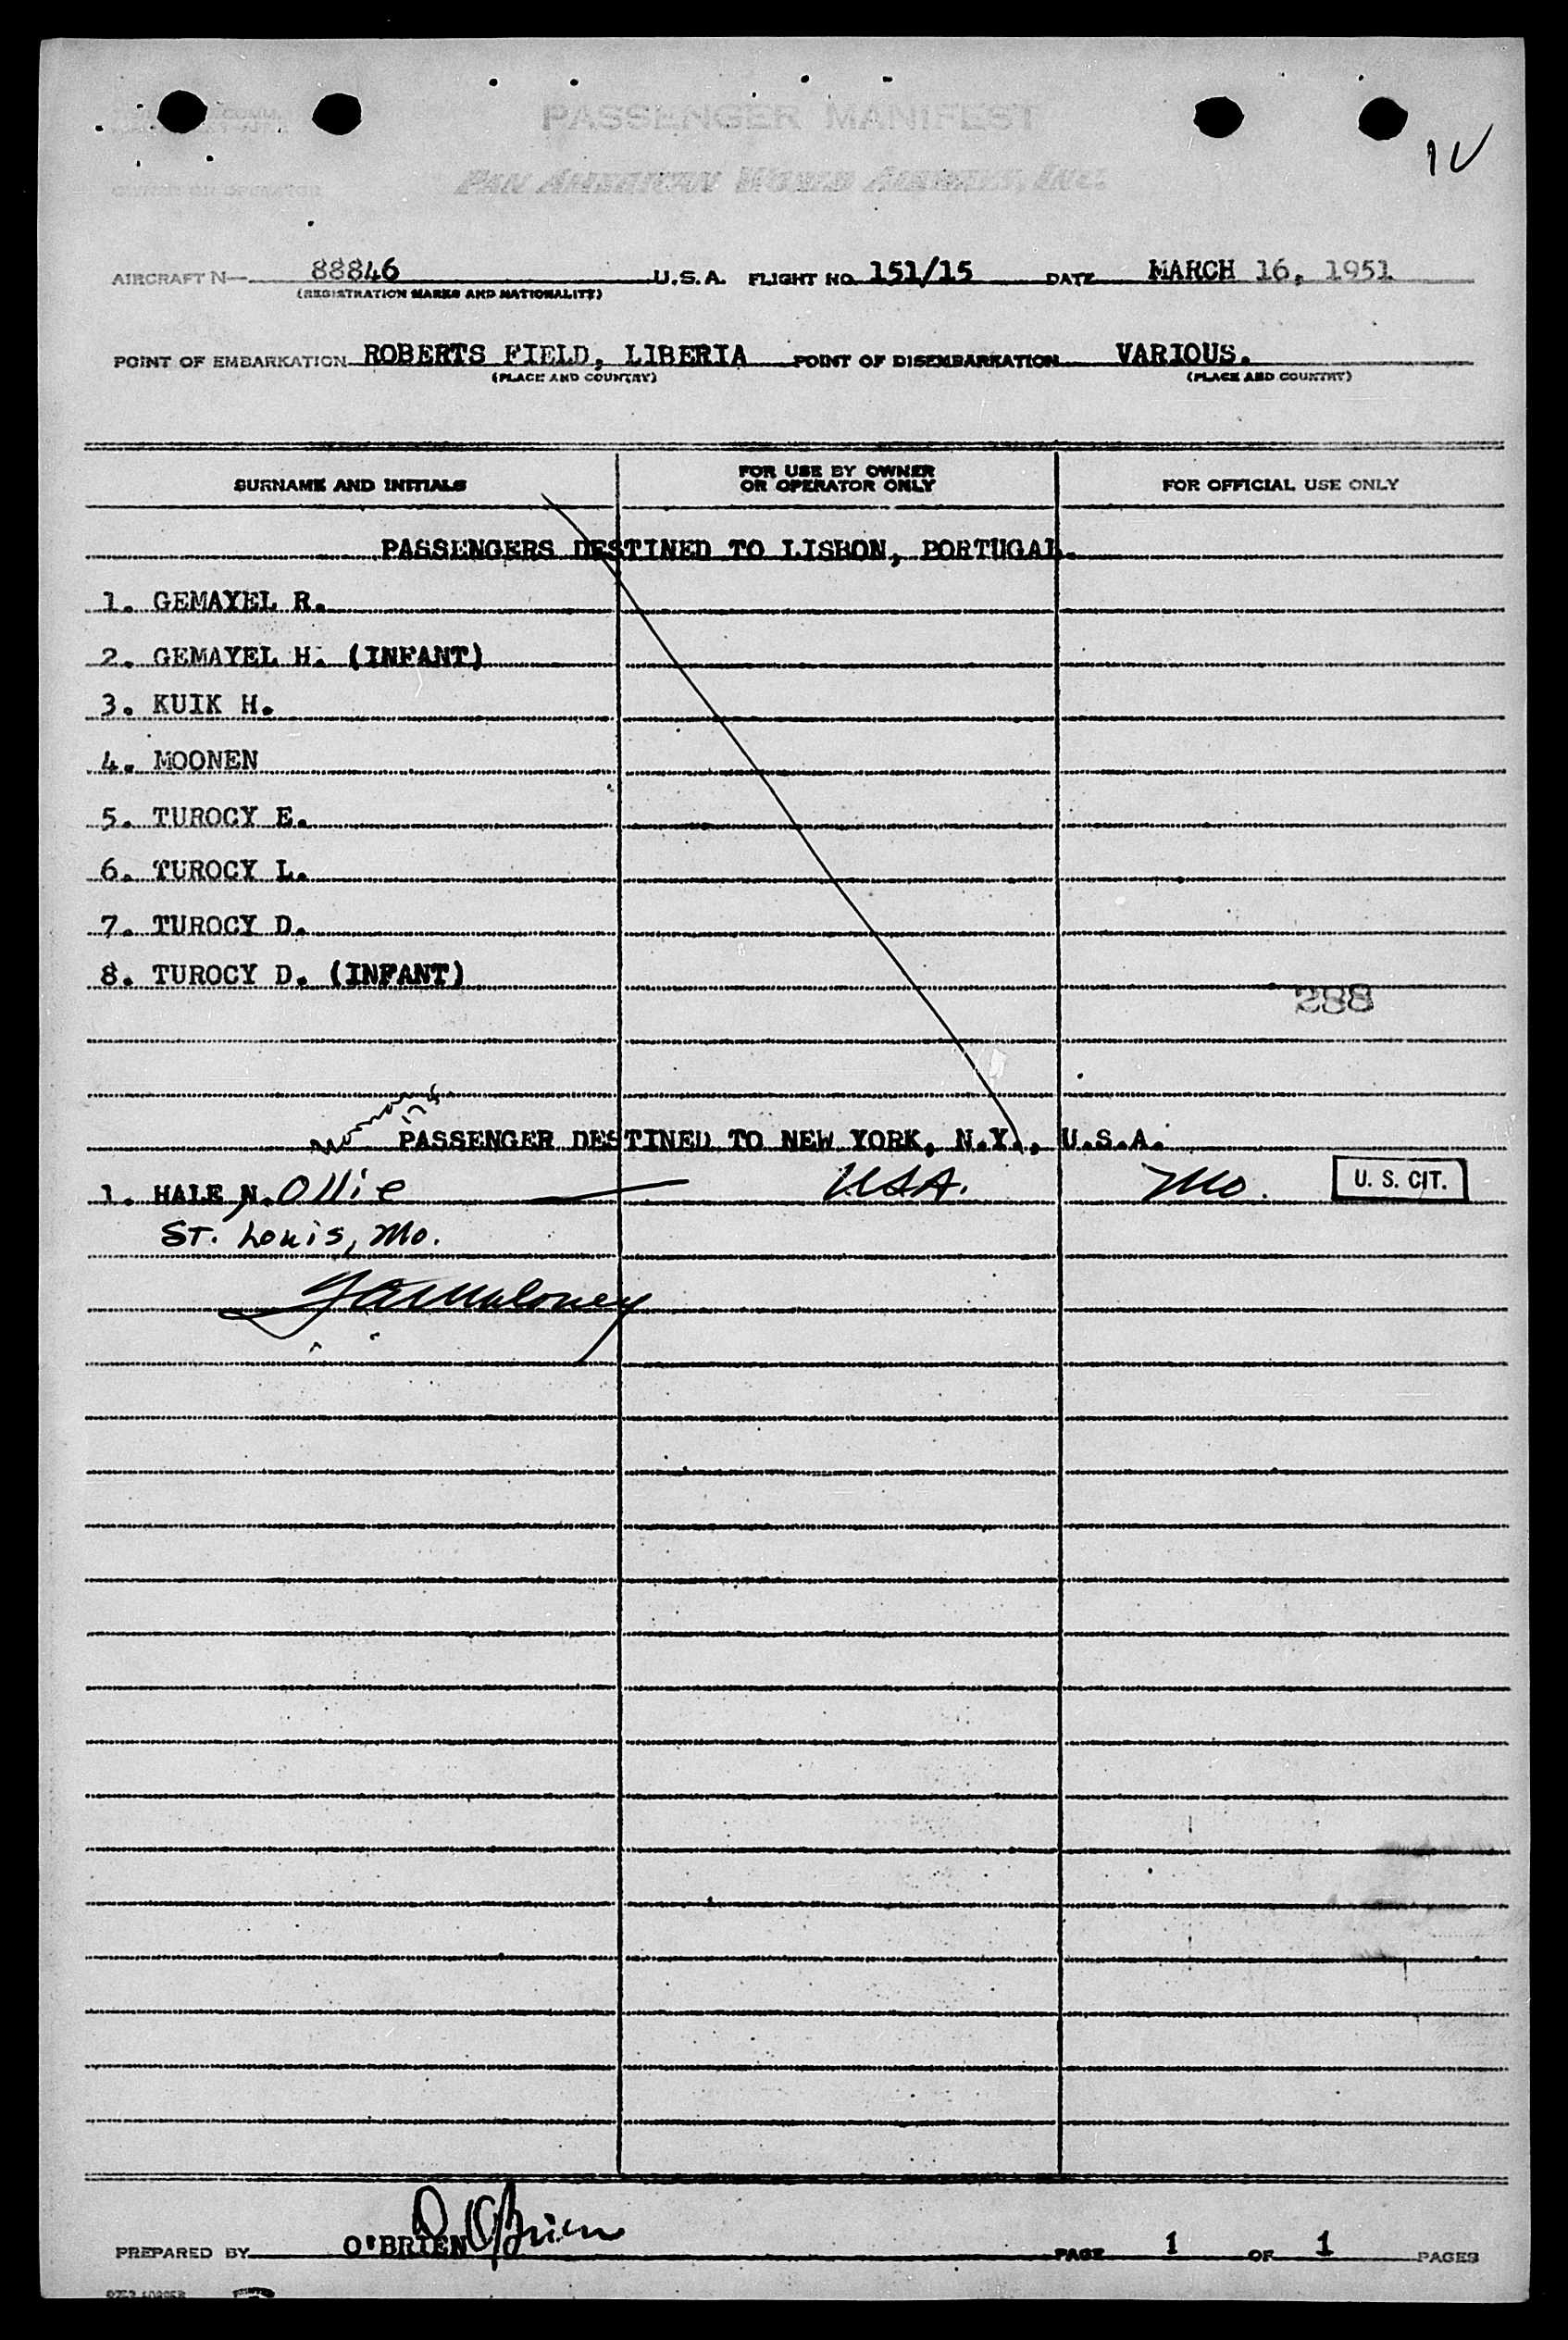 PASSENGER MANIFEST
PAN AMERICAN WORLD AIRWAYS, INC.
OWNER OR OPERATOR
AIRCRAFT N— 88846 U.S.A. FLIGHT NO. 151/15 DATE MARCH 16, 1951
(REGISTRATION MARKS AND NATIONALITY)
POINT OF EMBARKATION ROBERTS FIELD, LIBERIA POINT OF DISEMBARKATION VARIOUS.
(PLACE AND COUNTRY) (PLACE AND COUNTRY)
SURNAME AND INITIALS FOR USE BY OWNER OR OPERATOR ONLY FOR OFFICIAL USE ONLY
PASSENGERS DESTINED TO LISBON, PORTUGAL.
1. GEMAYEL R.
2. GEMAYEL H. (INFANT)
3. KUIK H.
4. MOONEN
5. TUROCY E.
6. TUROCY L.
7. TUROCY D.
8. TUROCY D. (INFANT)
288
PASSENGER DESTINED TO NEW YORK, N.Y., U.S.A.
1. HALE, N. Ollie — USA. Mo. U. S. CIT.
St. Louis, Mo.
PREPARED BY O'BRIEN D O'Brien PAGE 1 OF 1 PAGES